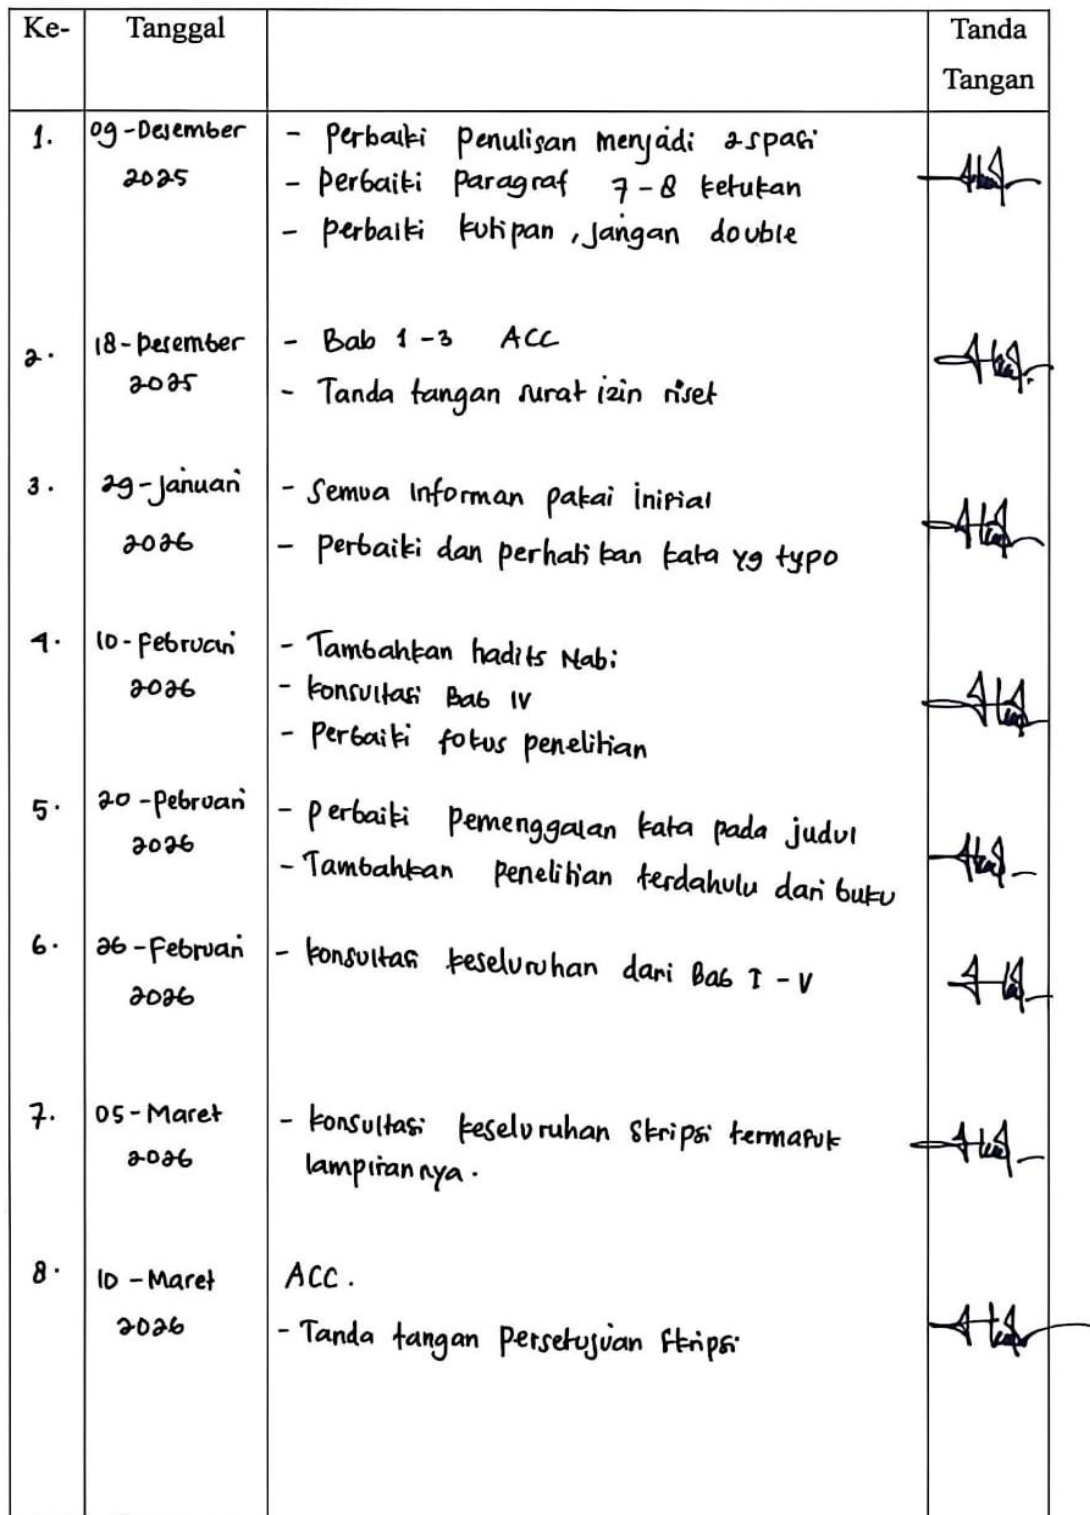 Ke- Tanggal Tanda
Tangan
1. 09-Desember - Perbaiki Penulisan menjadi 2 spasi
2025 - Perbaiki Paragraf 7-8 ketukan
- Perbaiki kutipan, jangan double
2. 18-Desember - Bab 1-3 ACC
2025 - Tanda tangan surat izin riset
3. 29-Januari - Semua Informan pakai inisial
2026 - Perbaiki dan perhatikan kata yg typo
4. 10-Februari - Tambahkan hadits Nabi
2026 - Konsultasi Bab IV
- Perbaiki fokus penelitian
5. 20-Pebruari - Perbaiki Pemenggalan kata pada judul
2026 - Tambahkan Penelitian terdahulu dari buku
6. 26-Februari - Konsultasi keseluruhan dari Bab I - V
2026
7. 05-Maret - Konsultasi keseluruhan Skripsi termasuk
2026 lampirannya.
8. 10-Maret ACC.
2026 - Tanda tangan Persetujuan Skripsi